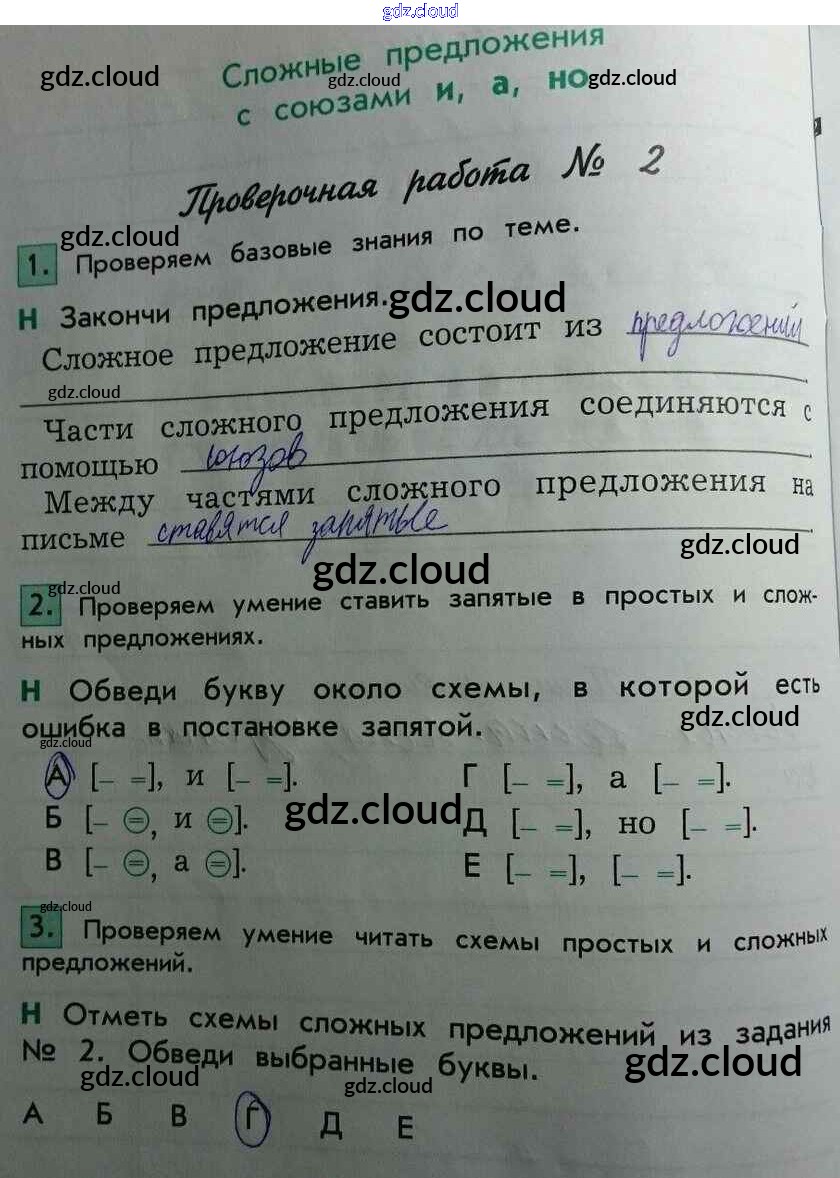 gdz.cloud
Сложные предложения
с союзами и, а, но
gdz.cloud
gdz.cloud
gdz.cloud
Проверочная работа № 2
gdz.cloud
1. Проверяем базовые знания по теме.
Н Закончи предложения.
gdz.cloud
Сложное предложение состоит из предложений
gdz.cloud
Части сложного предложения соединяются с
помощью союзов
Между частями сложного предложения на
письме ставятся запятые
gdz.cloud
gdz.cloud
gdz.cloud
2. Проверяем умение ставить запятые в простых и слож-
ных предложениях.
Н Обведи букву около схемы, в которой есть
ошибка в постановке запятой.
gdz.cloud
gdz.cloud
А [– =], и [– =]. Г [– =], а [– =].
Б [– =, и =]. gdz.cloud Д [– =], но [– =].
В [– =, а =]. Е [– =], [– =].
gdz.cloud
3. Проверяем умение читать схемы простых и сложных
предложений.
Н Отметь схемы сложных предложений из задания
№ 2. Обведи выбранные буквы.
gdz.cloud
gdz.cloud
gdz.cloud
А Б В Г Д Е